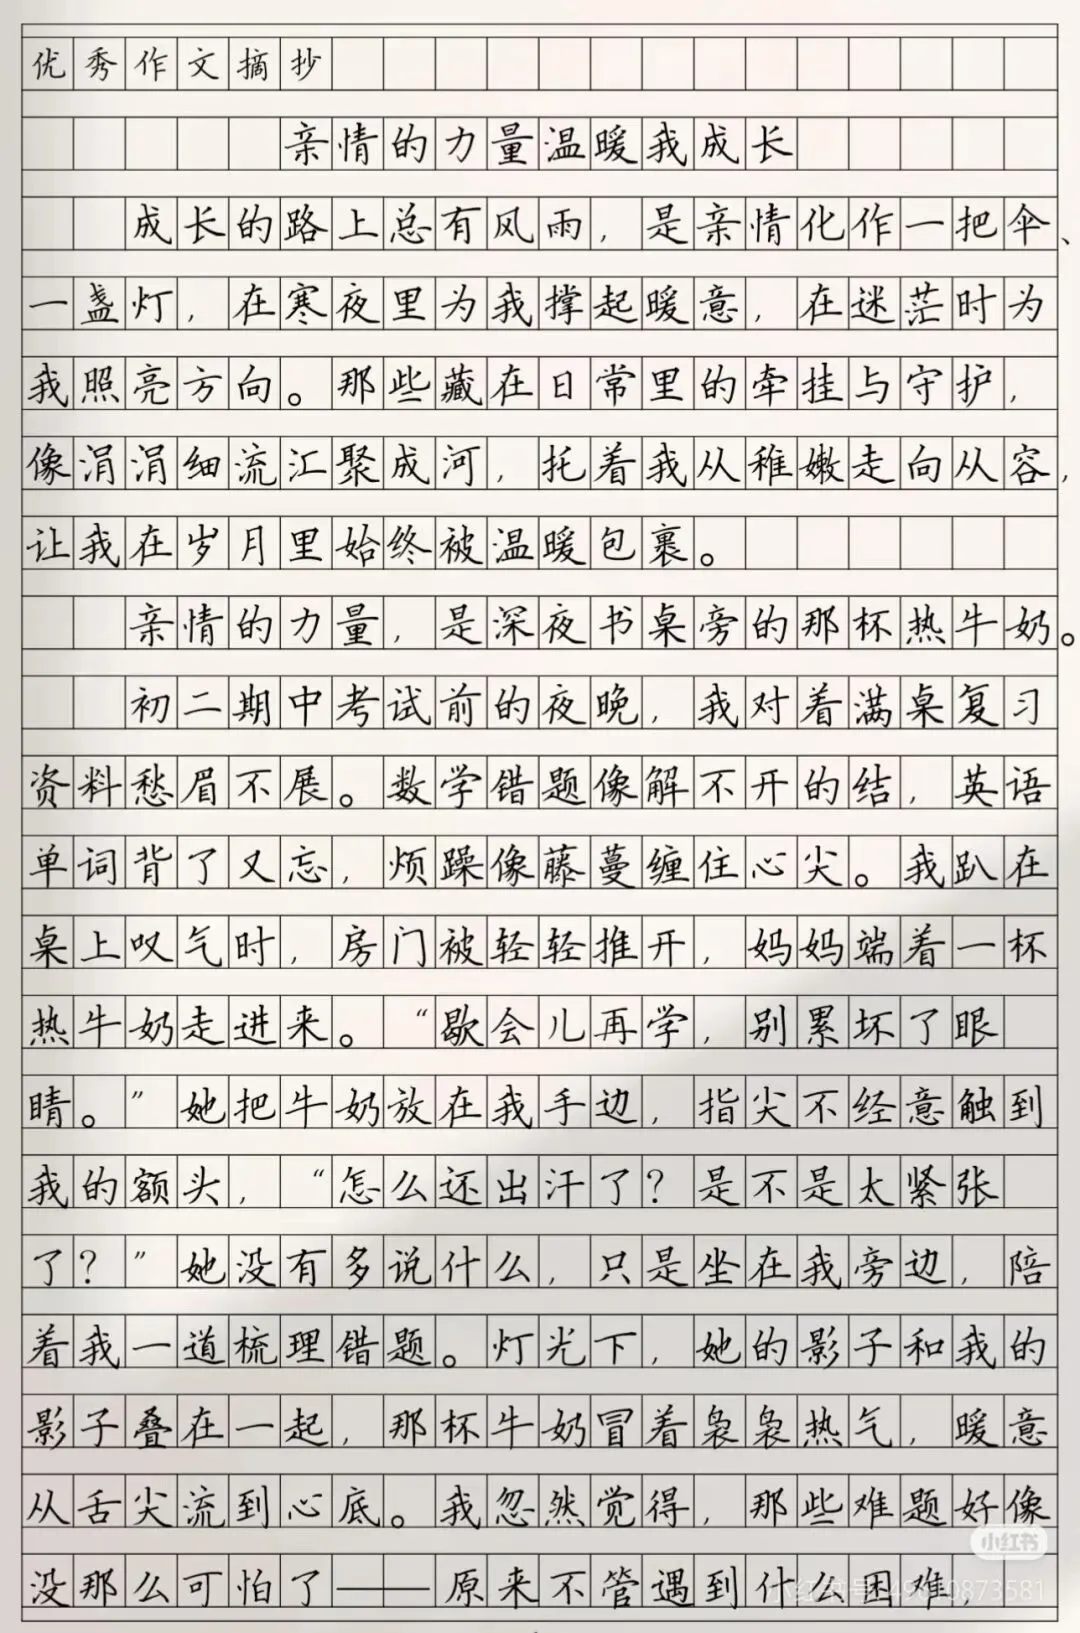 优秀作文摘抄
亲情的力量温暖我成长
成长的路上总有风雨，是亲情化作一把伞、
一盏灯，在寒夜里为我撑起暖意，在迷茫时为
我照亮方向。那些藏在日常里的牵挂与守护，
像涓涓细流汇聚成河，托着我从稚嫩走向从容，
让我在岁月里始终被温暖包裹。
亲情的力量，是深夜书桌旁的那杯热牛奶。
初二期中考试前的夜晚，我对着满桌复习
资料愁眉不展。数学错题像解不开的结，英语
单词背了又忘，烦躁像藤蔓缠住心尖。我趴在
桌上叹气时，房门被轻轻推开，妈妈端着一杯
热牛奶走进来。“歇会儿再学，别累坏了眼
睛。”她把牛奶放在我手边，指尖不经意触到
我的额头，“怎么还出汗了？是不是太紧张
了？”她没有多说什么，只是坐在我旁边，陪
着我一道梳理错题。灯光下，她的影子和我的
影子叠在一起，那杯牛奶冒着袅袅热气，暖意
从舌尖流到心底。我忽然觉得，那些难题好像
没那么可怕了——原来不管遇到什么困难，
小红书